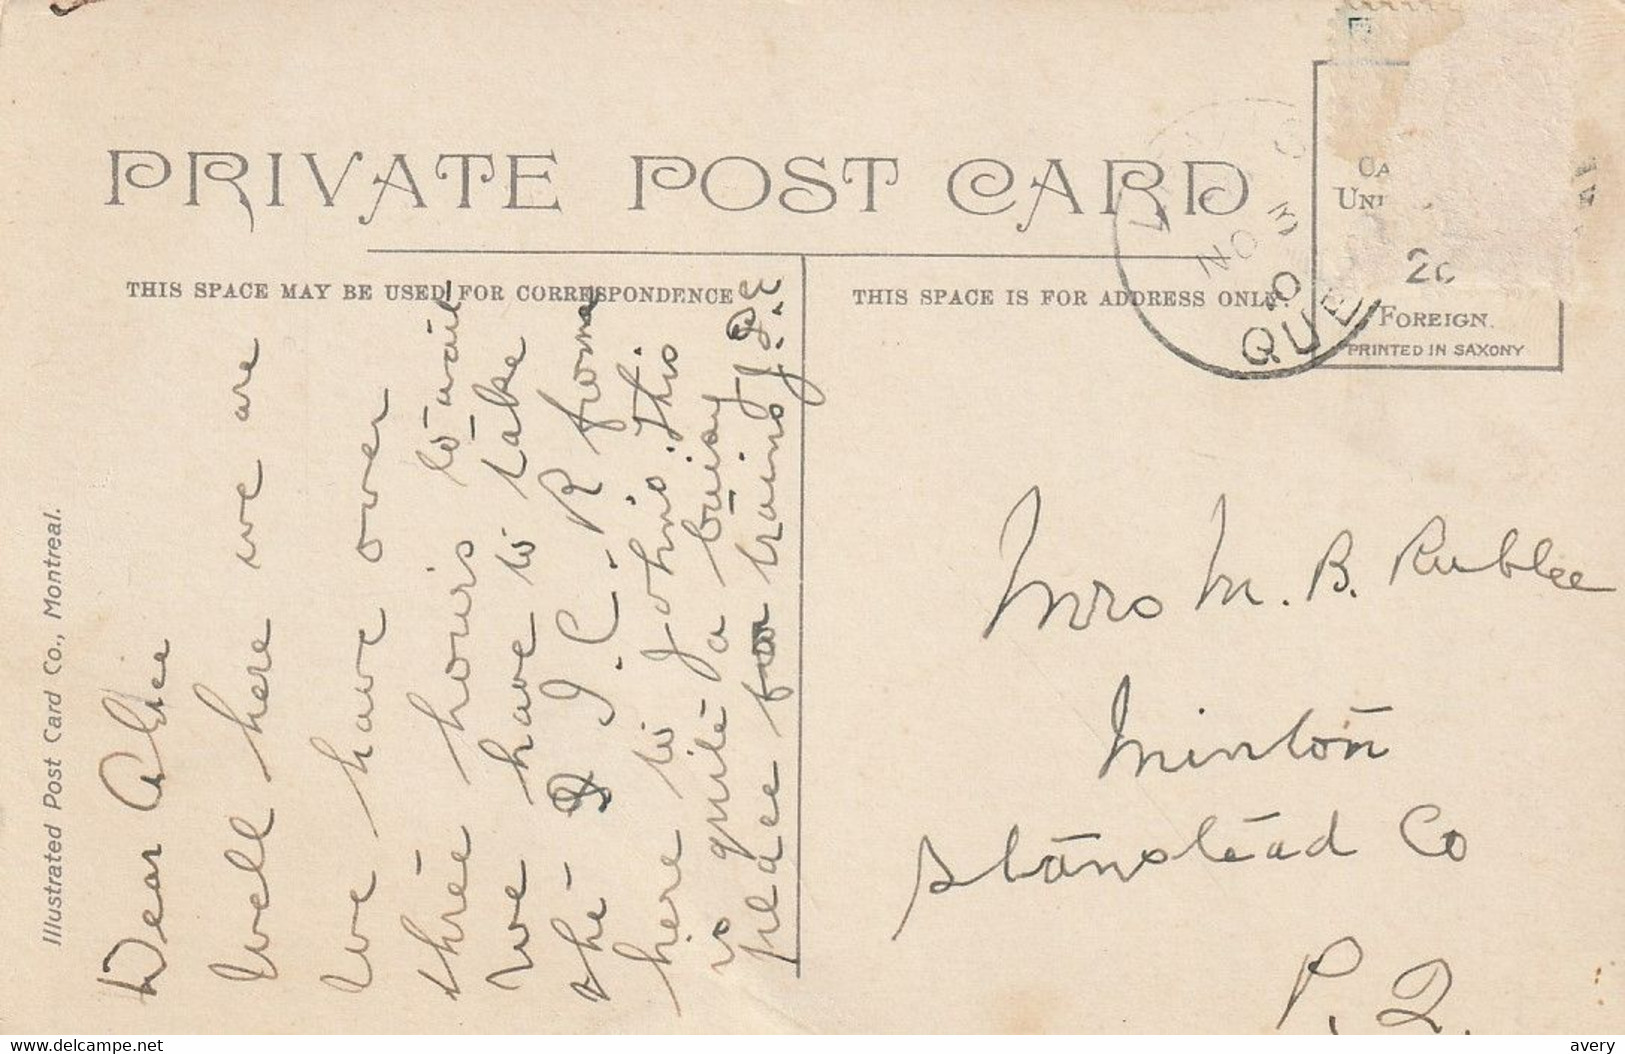 PRIVATE POST CARD
THIS SPACE MAY BE USED FOR CORRESPONDENCE
THIS SPACE IS FOR ADDRESS ONLY.
CA
UNI
2c
FOREIGN.
PRINTED IN SAXONY
NO 3
QUE
Illustrated Post Card Co., Montreal.
Dear
Well here we are
We have over
three hours to wait
We have to take
the I. C. R from
here to Johns. This
is quite a buisy
place for trains J. P. E
Mrs M. B. Rublee
Minton
Stanstead Co
P. Q.
www.delcampe.net
avery